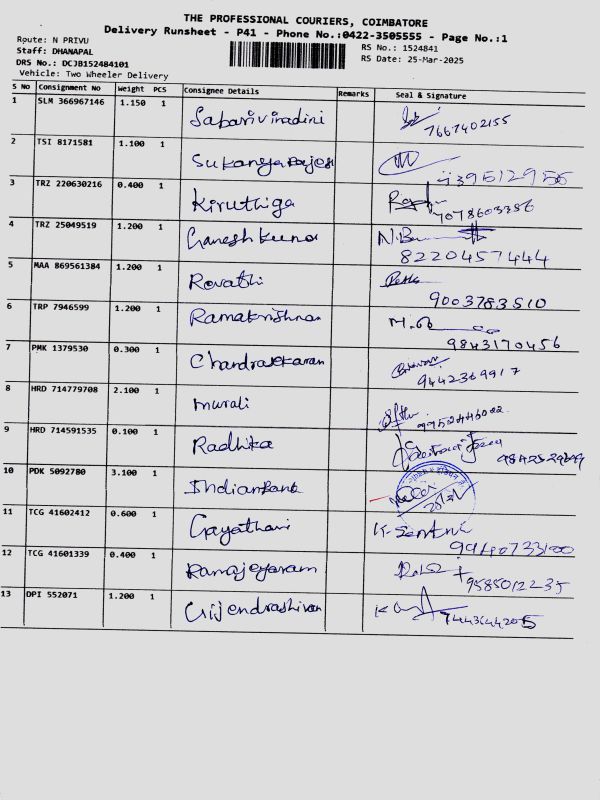 THE PROFESSIONAL COURIERS, COIMBATORE
Delivery Runsheet - P41 - Phone No.:0422-3505555 - Page No.:1
Route: N PRIVU
RS No.: 1524841
Staff: DHANAPAL
RS Date: 25-Mar-2025
DRS No.: DCJB152484101
Vehicle: Two Wheeler Delivery
S No Consignment No Weight PCS Consignee Details Remarks Seal & Signature
1 SLM 366967146 1.150 1 Sabarivinadini
7667402155
2 TSI 8171581 1.100 1 Sukanyarajesh
3 TRZ 220630216 0.400 1 Kiruthiga
7078603356
4 TRZ 25049519 1.200 1 Ganeshkumar
8220457444
5 MAA 869561384 1.200 1 Revathi
9003783510
6 TRP 7946599 1.200 1 Ramakrishnan
9843170456
7 PMK 1379530 0.300 1 Chandrasekaran
9442369917
8 HRD 714779708 2.100 1 murali
9952446022
9 HRD 714591535 0.100 1 Radhika
10 PDK 5092780 3.100 1 Indianbank
11 TCG 41602412 0.600 1 Gayathari K. Senthil
9940733100
12 TCG 41601339 0.400 1 Ramajeyaram
9585012235
13 DPI 552071 1.200 1 Gijendrashivan
7443644205